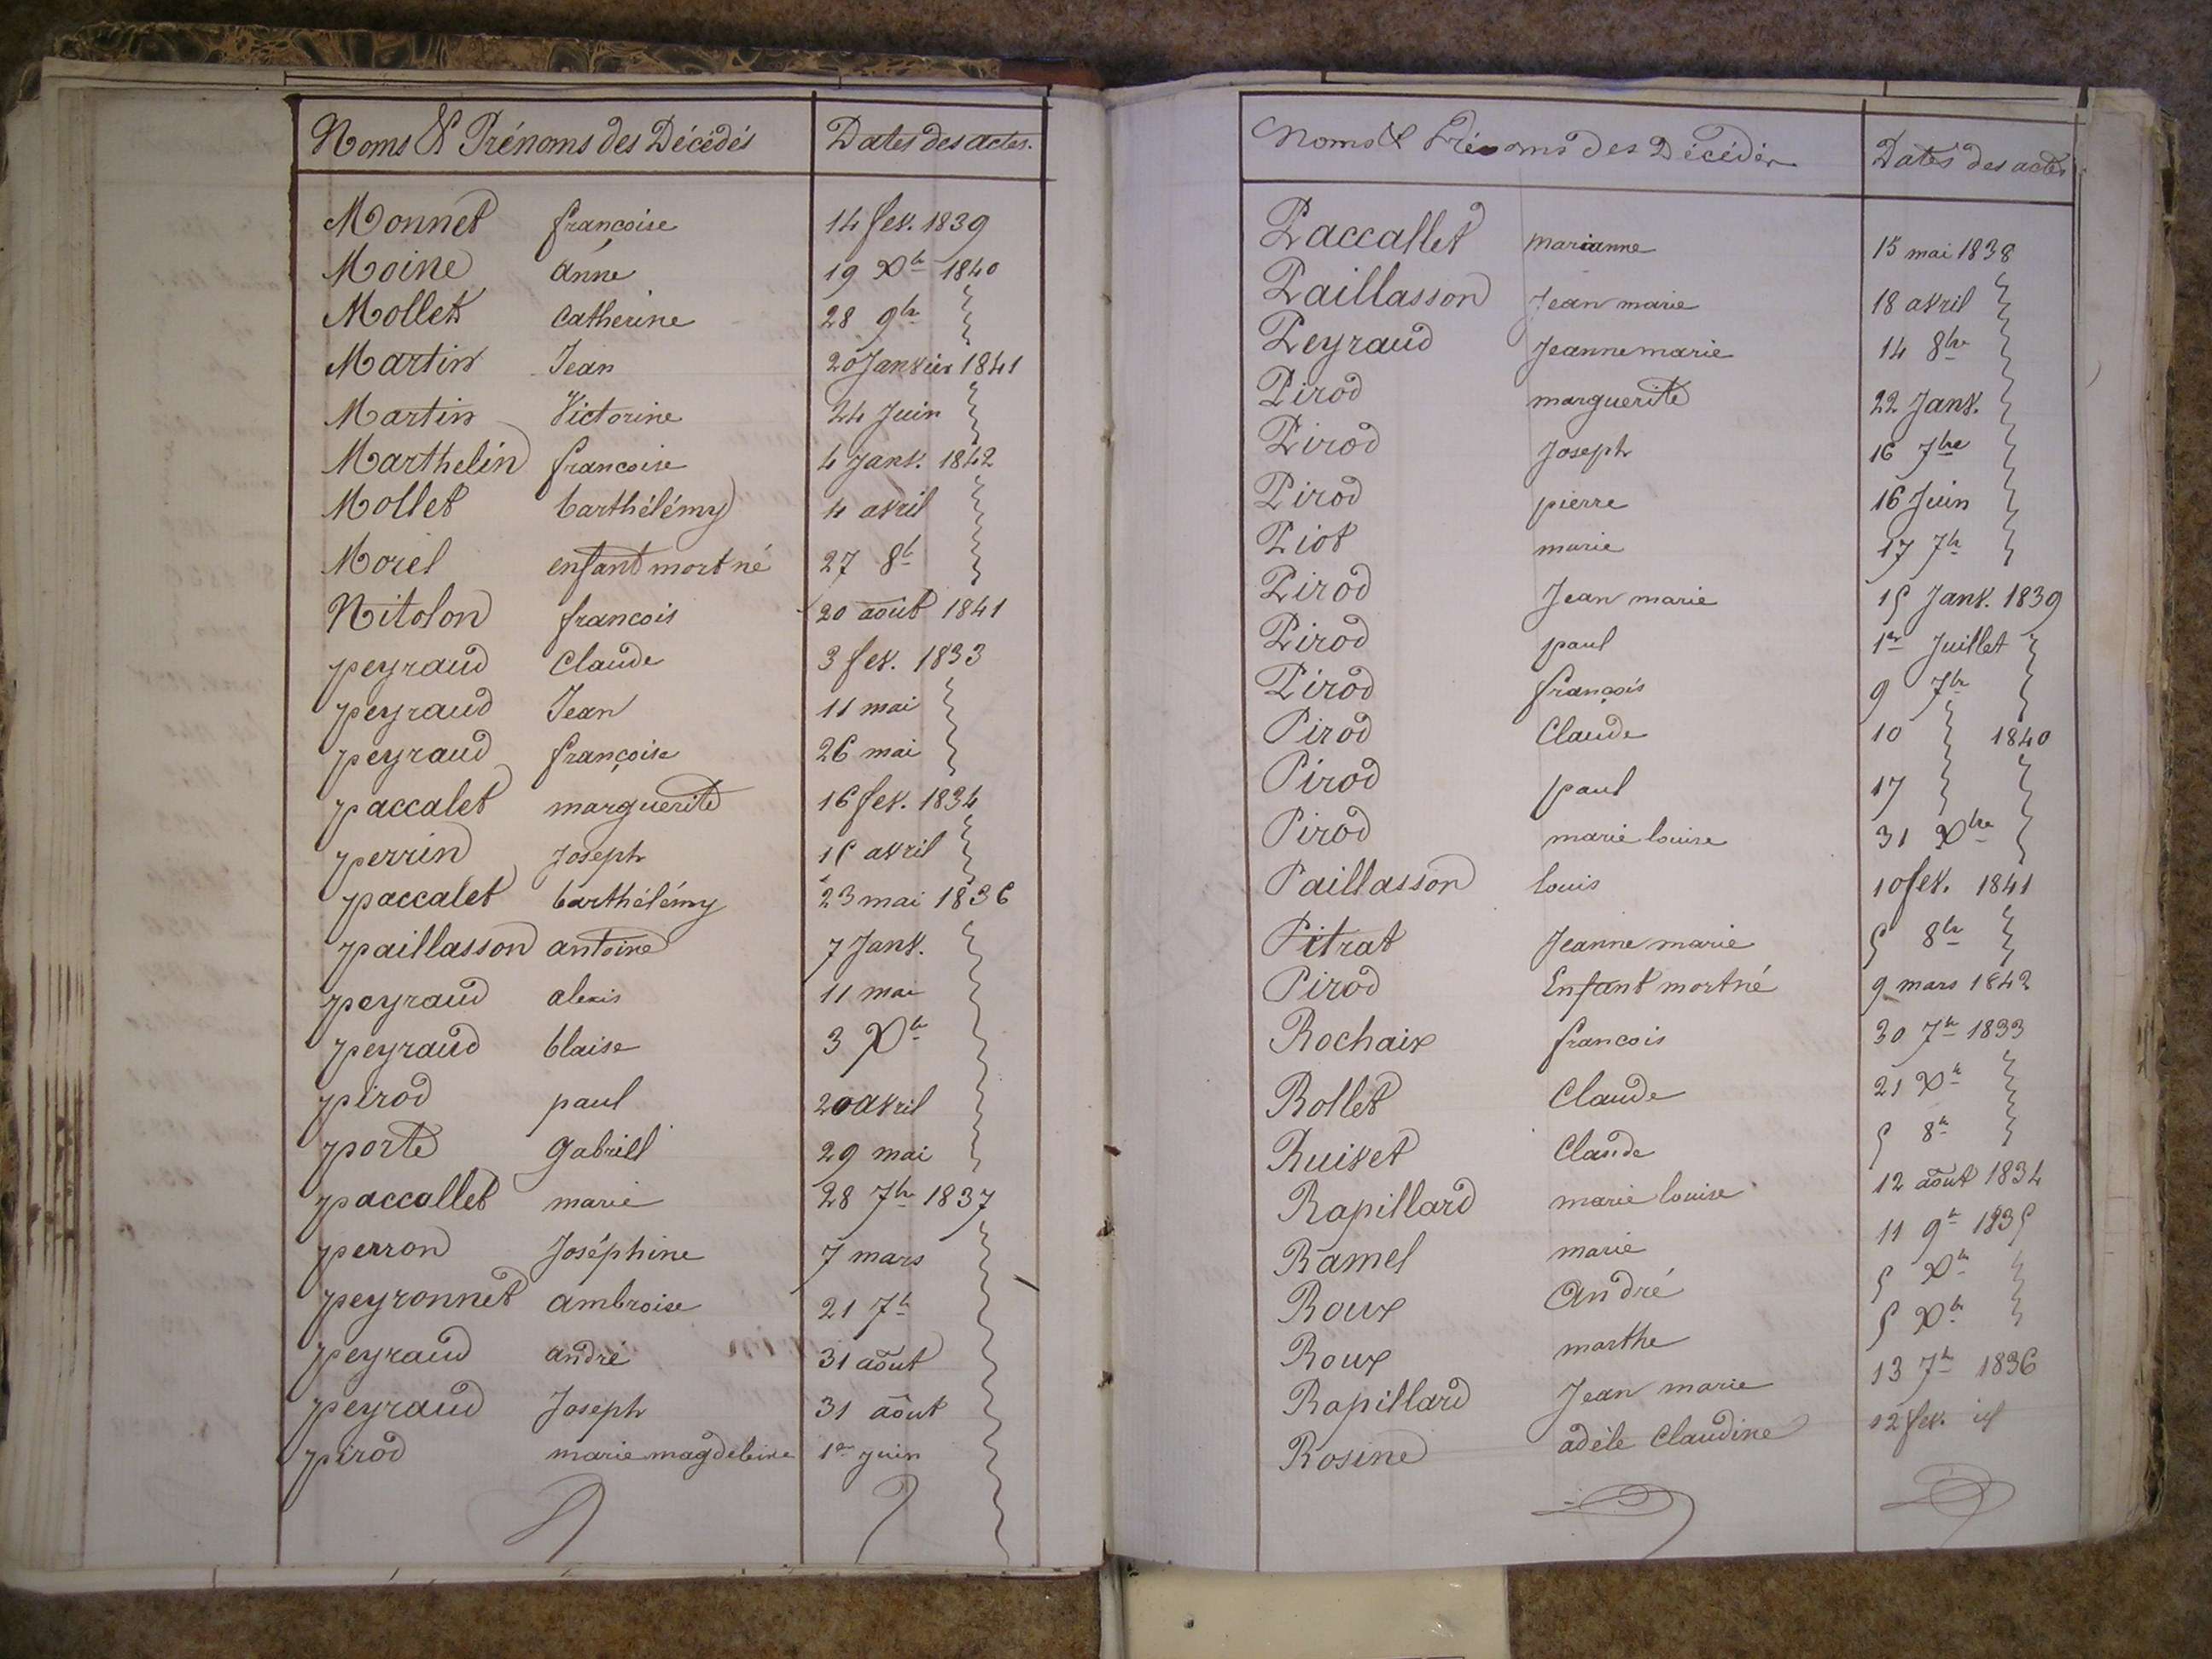 Noms & Prénoms des Décédés Dates des actes.
Monnet françoise 14 fev. 1839
Moine anne 19 Xbre 1840
Mollet Catherine 28 9bre
Martin Jean 20 Janvier 1841
Martin Victorine 24 Juin
Marthelin francoise 4 Janv. 1842
Mollet barthélémy 4 avril
Morel enfant mort né 27 8b
Nitolon francois 20 août 1841
peyraud Claude 3 fev. 1833
peyraud Jean 11 mai
peyraud françoise 26 mai
paccalet marguerite 16 fev. 1834
perrin Joseph 15 avril
paccalet barthélémy 23 mai 1836
paillasson antoine 7 Janv.
peyraud alexis 11 mai
peyraud blaise 3 Xbre
pirod paul 20 avril
porte gabriel 29 mai
paccallet marie 28 7bre 1837
perron Joséphine 7 mars
peyronnet ambroise 21 7b
peyraud andré 31 août
peyraud Joseph 31 août
pirod marie magdeleine 1er Juin
Noms & Prénoms des Décédés Dates des actes
Paccallet marianne 15 mai 1838
Paillasson Jean marie 18 avril
Peyraud Jeanne marie 14 8bre
Pirod marguerite 22 Janv.
Pirod Joseph 16 7bre
Pirod pierre 16 Juin
Piot marie 17 7br
Pirod Jean marie 15 Janv. 1839
Pirod paul 1er Juillet
Pirod françois 9 7br
Pirod Claude 10 1840
Pirod paul 17
Pirod marie louise 31 Xbre
Paillasson louis 10 fev. 1841
Pitrat Jeanne marie 5 8br
Pirod Enfant mort né 9 mars 1842
Rochaix francois 30 7b 1833
Rollet Claude 21 Xb
Ruivet Claude 5 8b
Rapillard marie louise 12 août 1834
Ramel marie 11 9b 1835
Roux André 5 Xbr
Roux marthe 5 Xbr
Rapillard Jean marie 13 7b 1836
Rosine adèle Claudine 12 fev. id